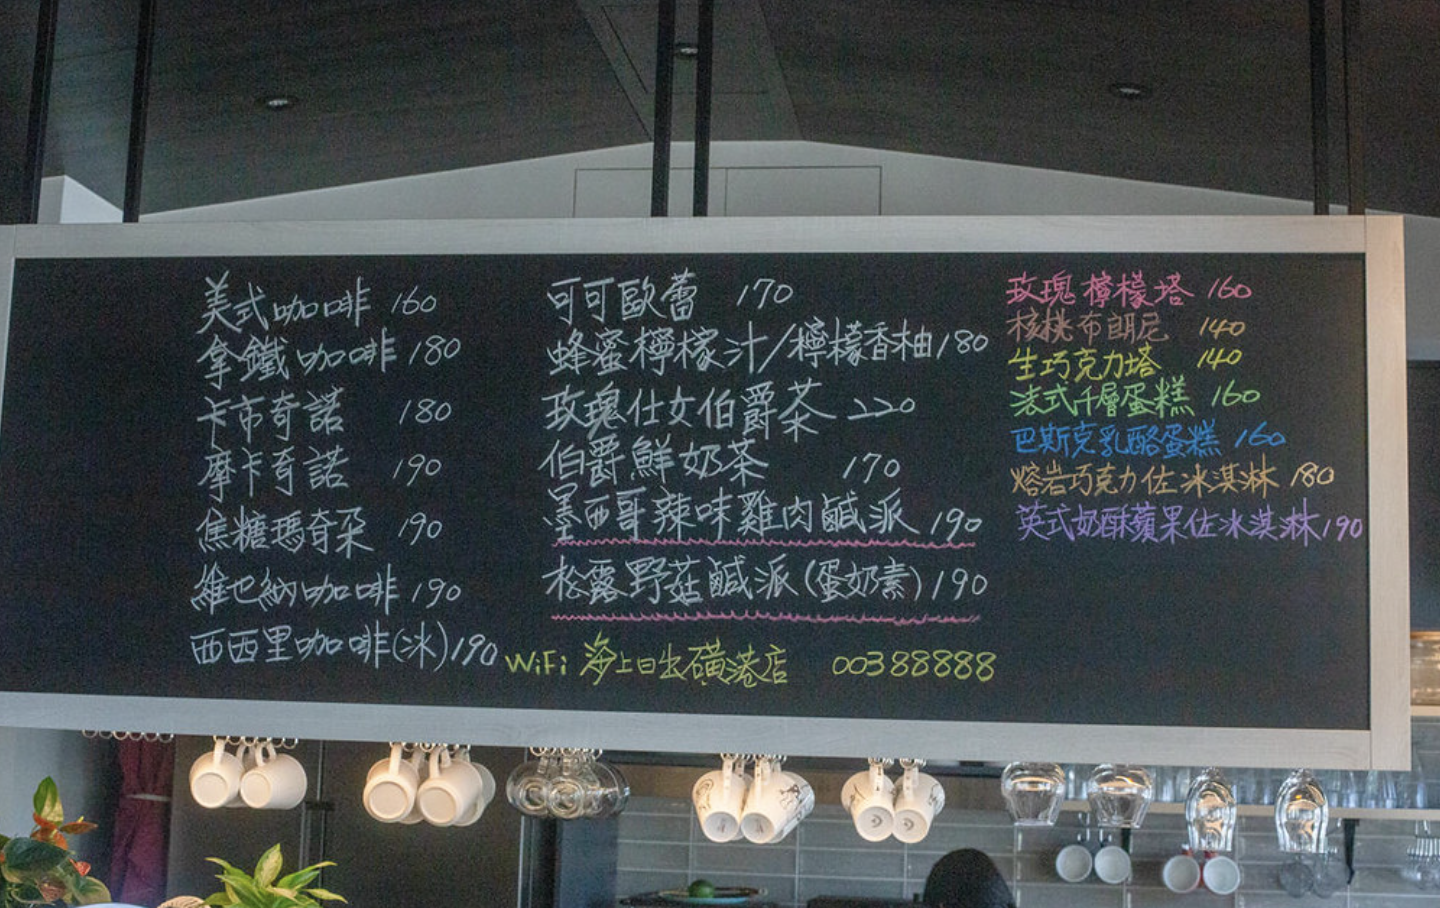 美式咖啡 160
拿鐵咖啡 180
卡布奇諾 180
摩卡奇諾 190
焦糖瑪奇朵 190
維也納咖啡 190
西西里咖啡(冰) 190
可可歐蕾 170
蜂蜜檸檬汁/檸檬香柚 180
玫瑰仕女伯爵茶 220
伯爵鮮奶茶 170
墨西哥辣味雞肉鹹派 190
松露野菇鹹派(蛋奶素) 190
WiFi 海上日出磺港店 00388888
玫瑰檸檬塔 160
核桃布朗尼 140
生巧克力塔 140
法式千層蛋糕 160
巴斯克乳酪蛋糕 160
熔岩巧克力佐冰淇淋 180
英式奶酥蘋果佐冰淇淋 190